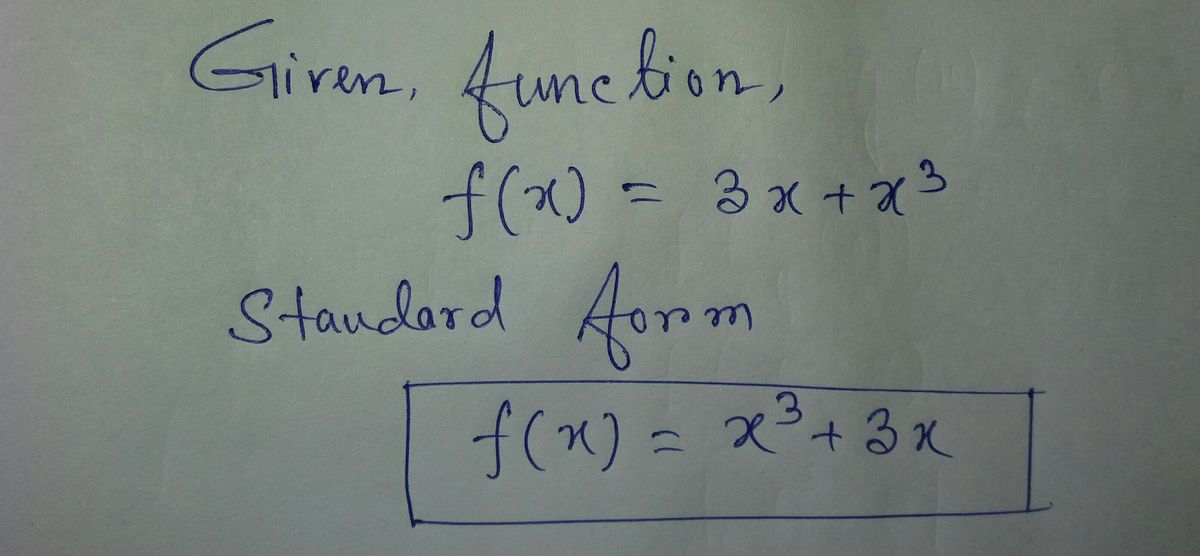 Given, function,
f(x) = 3x + x³
Standard form
f(x) = x³ + 3x